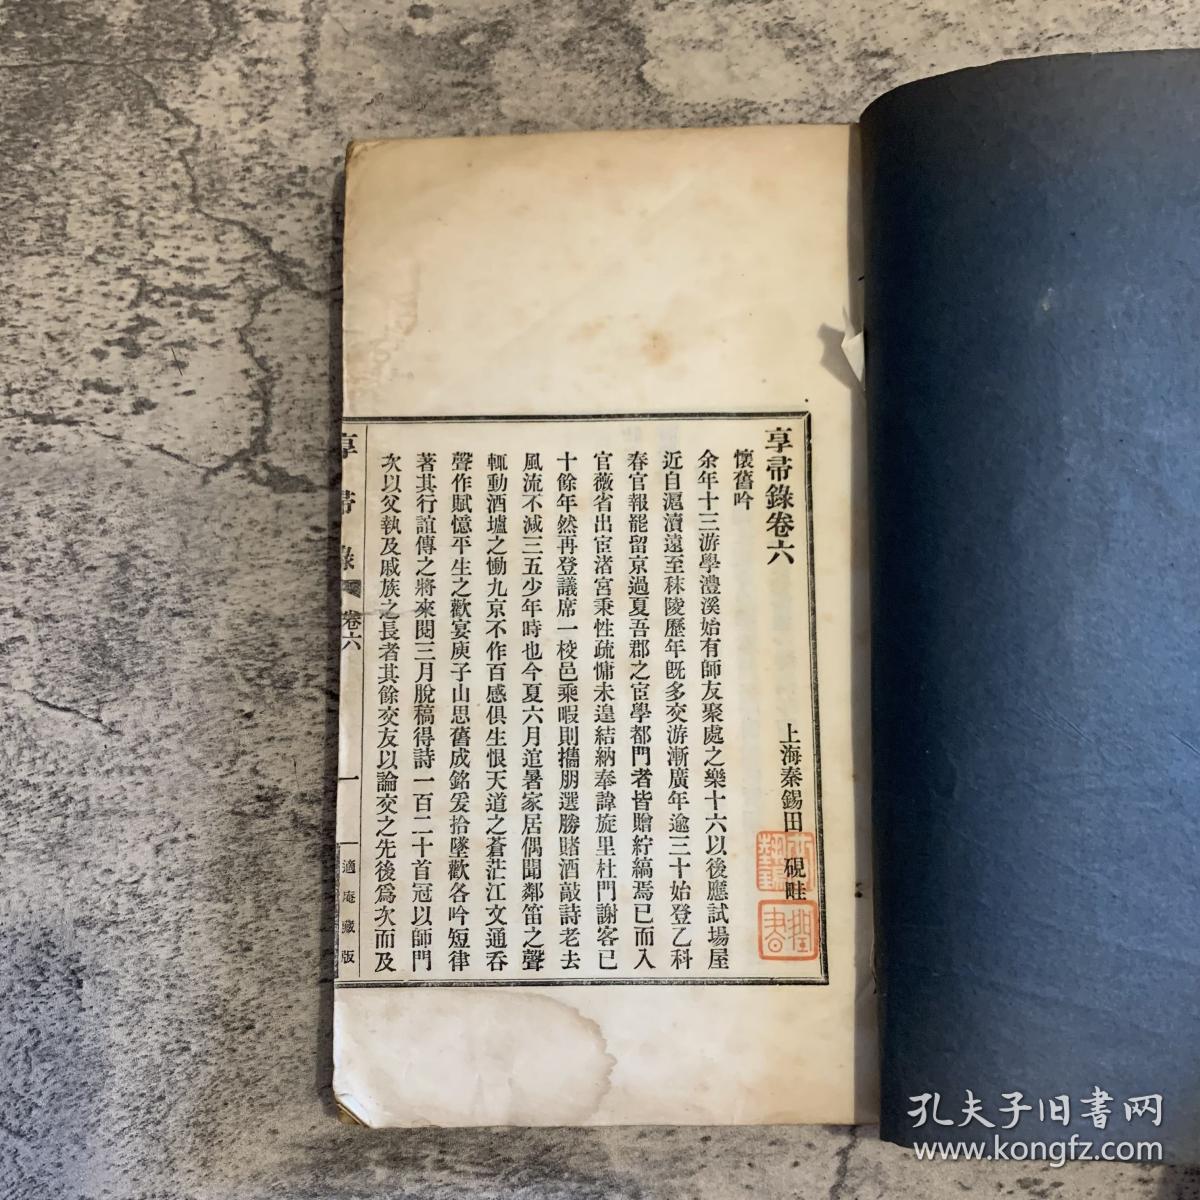 享帚錄卷六
上海秦錫田 硯畦
懷舊吟
余年十三游學澧溪始有師友聚處之樂十六以後應試場屋
近自滬瀆遠至秣陵歷年旣多交游漸廣年逾三十始登乙科
春官報罷留京過夏吾郡之宦學都門者皆贈紵縞焉已而入
官薇省出宦渚宮秉性疏慵未遑結納奉諱旋里杜門謝客已
十餘年然再登議席一稜邑乘暇則攜朋選勝賭酒敲詩老去
風流不減三五少年時也今夏六月逭暑家居偶聞鄰笛之聲
輒動酒壚之慟九京不作百感俱生恨天道之蒼茫江文通吞
聲作賦憶平生之歡宴庾子山思舊成銘爰拾墜歡各吟短律
著其行誼傳之將來閱三月脫稿得詩一百二十首冠以師門
次以父執及戚族之長者其餘交友以論交之先後爲次而及
享帚錄 卷六 一 適庵藏版
孔夫子旧书网
www.kongfz.com